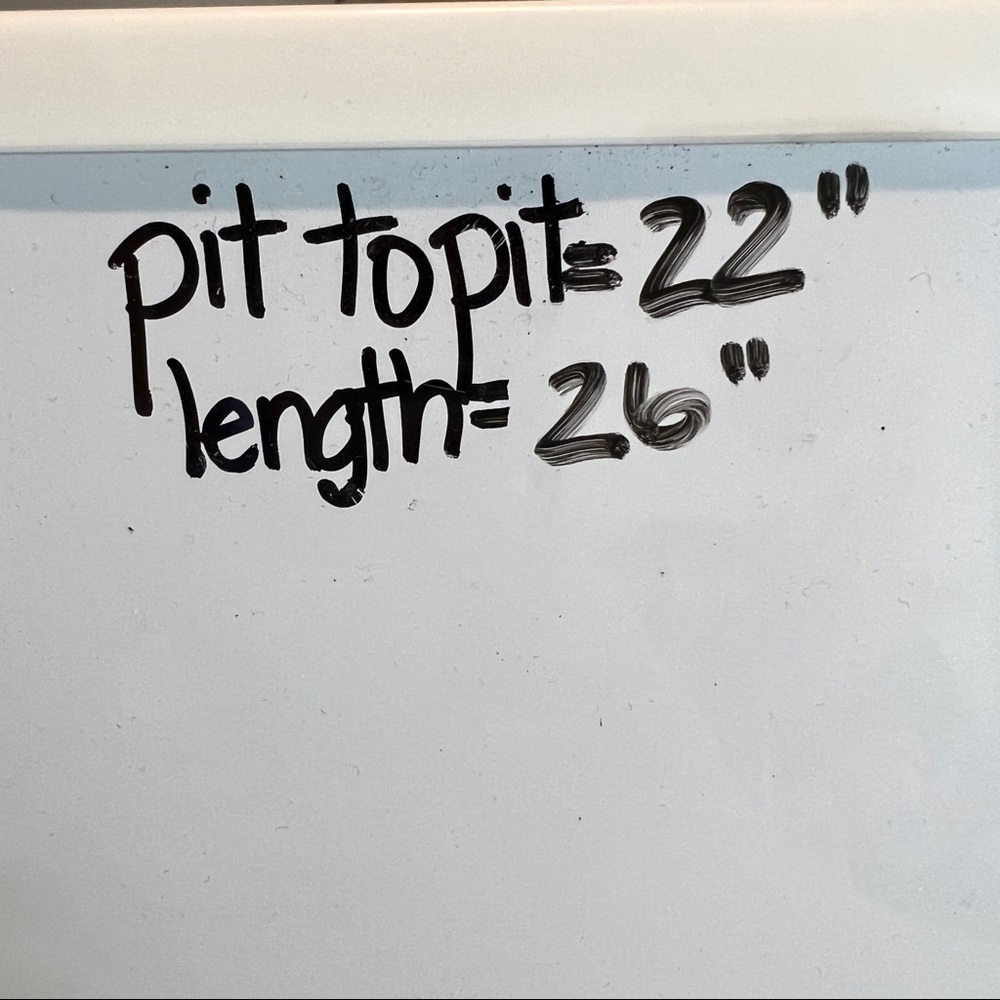 pit to pit= 22"
length= 26"